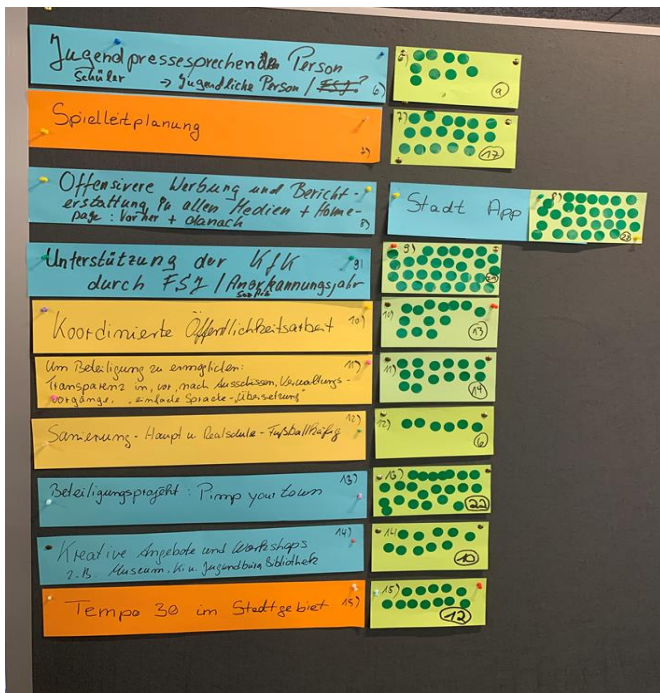 Jugendpressesprechende Person
Schüler → Jugendliche Person / FSJ?
6)
9
Spielleitplanung
7)
7)
17
Offensivere Werbung und Bericht-
erstattung in allen Medien + Home-
page: Vorher + danach
8)
Stadt App
8)
Unterstützung der KfK
durch FSJ / Anerkennungsjahr
SozPäd
9)
9)
Koordinierte Öffentlichkeitsarbeit
10)
10)
13
Um Beteiligung zu ermöglichen:
Transparenz in, vor, nach Ausschüssen, Verwaltungs-
vorgänge, "einfache Sprache-Übersetzung"
11)
11)
14
Sanierung - Haupt u Realschule - Fußballkäfig
12)
12)
6
Beteiligungsprojekt: Pimp your Town
13)
13)
22
Kreative Angebote und Workshops
z.B. Museum, Ki u. Jugendbüro Bibliothek
14)
14
10
Tempo 30 im Stadtgebiet
15)
15)
12